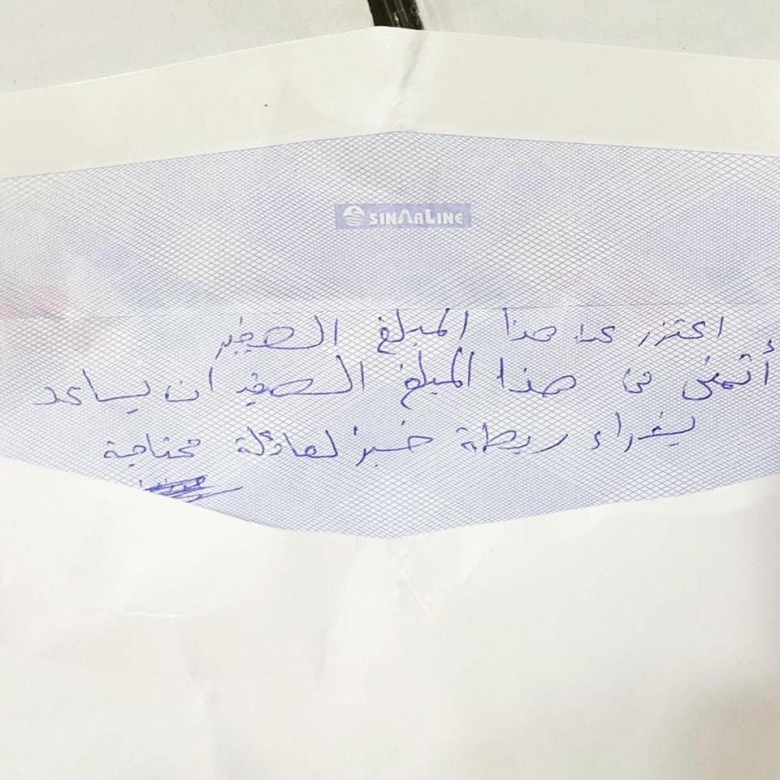 SINARLINE
اعتزر عن هذا المبلغ الصغير
أتمنى في هذا المبلغ الصغير ان يساعد
بشراء ربطة خبز لعائلة محتاجة